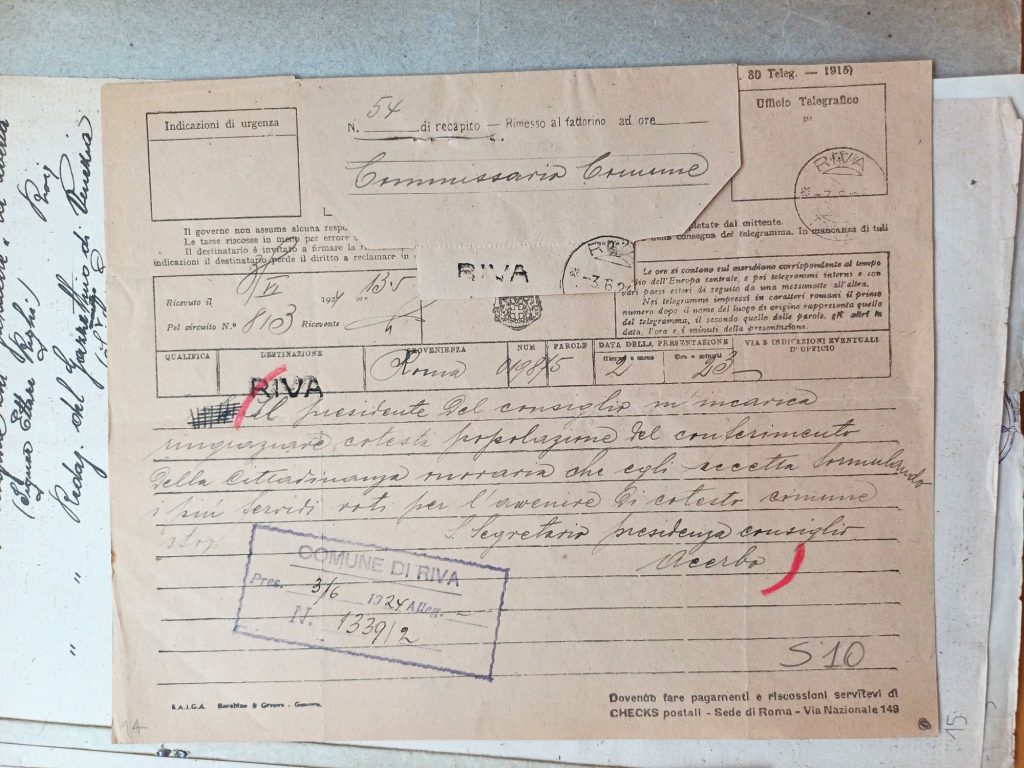 30 Teleg. — 1915)
Indicazioni di urgenza
N. 54 di recapito — Rimesso al fattorino ad ore
Commissario Comune
Ufficio Telegrafico
DI
RIVA
Il governo non assume alcuna resp
Le tasse riscosse in meno per errore
Il destinatario è invitato a firmare la
indicazioni il destinatario perde il diritto a reclamare in
pletate dal mittente.
della consegna del telegramma. In mancanza di tali
RIVA
3.6.2
Ricevuto il VI 1924 ore 13.5
Pel circuito N.° 8103 Ricevente
Le ore si contano sul meridiano corrispondente al tempo
dell'Europa centrale, e pei telegrammi interni e con
paesi esteri di seguito da una mezzanotte all'altra.
Nei telegrammi impressi in caratteri romani il primo
numero dopo il nome del luogo di origine rappresenta quello
del telegramma, il secondo quello delle parole, gli altri la
data, l'ora e i minuti della presentazione.
QUALIFICA DESTINAZIONE PROVENIENZA NUM PAROLE DATA DELLA PRESENTAZIONE VIA E INDICAZIONI EVENTUALI D'UFFICIO
Giorno e mese Ore e minuti
RIVA Roma 2 23
Il presidente del consiglio m'incarica
ringraziare cotesta popolazione del conferimento
della cittadinanza onoraria che egli accetta formulando
i più fervidi voti per l'avvenire di cotesto comune
S. Segretario presidenza consiglio
Acerbo
COMUNE DI RIVA
Pres. 3/6 1924 Alleg.
N. 1339/2
S10
S.A.I.G.A. Barabino & Graeve - Genova.
Dovendo fare pagamenti e riscossioni servitevi di
CHECKS postali - Sede di Roma - Via Nazionale 149
14
15
(Signor Ettore Righi)
" Redaz. del Gazzettino di Venezia